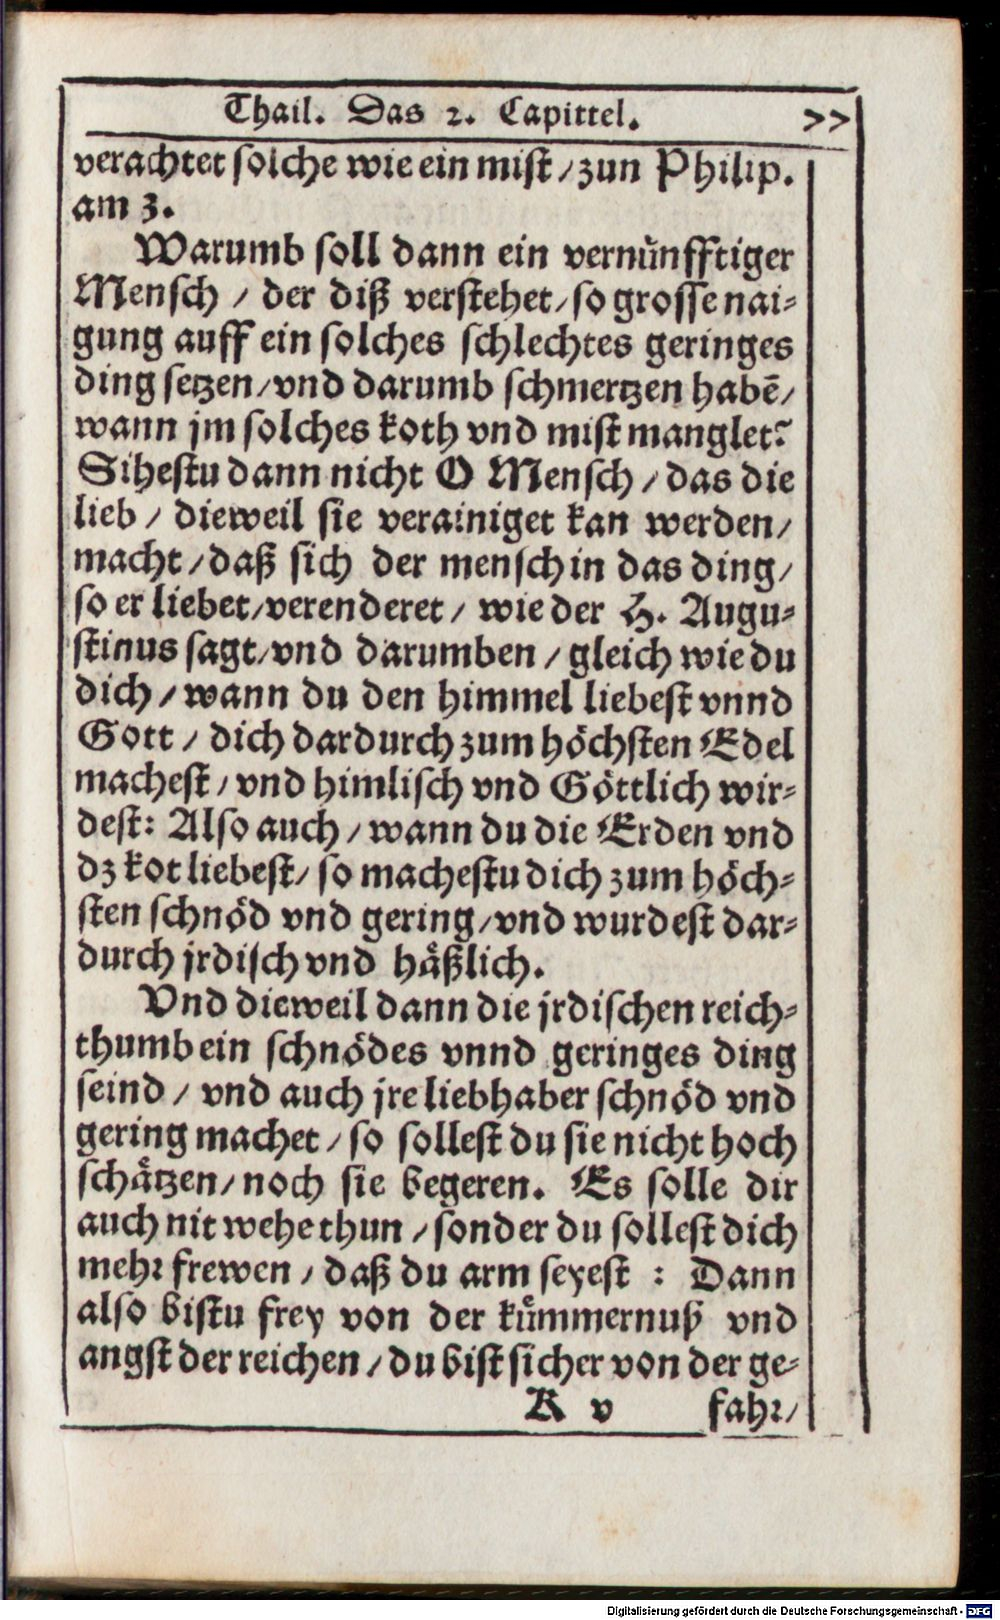 Thail. Das 2. Capittel. 77
verachtet solche wie ein mist / zun Philip.
am 3.
Warumb soll dann ein vernünfftiger
Mensch / der diß verstehet / so grosse nai-
gung auff ein solches schlechtes geringes
ding setzen / vnd darumb schmertzen habē /
wann jm solches koth vnd mist manglet?
Sihestu dann nicht O Mensch / das die
lieb / dieweil sie verainiget kan werden /
macht / daß sich der mensch in das ding /
so er liebet / verenderet / wie der H. Augu-
stinus sagt / vnd darumben / gleich wie du
dich / wann du den himmel liebest vnnd
Gott / dich dardurch zum höchsten Edel
machest / vnd himlisch vnd Göttlich wir-
dest: Also auch / wann du die Erden vnd
dz kot liebest / so machestu dich zum höch-
sten schnöd vnd gering / vnd wurdest dar-
durch jrdisch vnd häßlich.
Vnd dieweil dann die jrdischen reich-
thumb ein schnödes vnnd geringes ding
seind / vnd auch jre liebhaber schnöd vnd
gering machet / so sollest du sie nicht hoch
schätzen / noch sie begeren. Es solle dir
auch nit wehe thun / sonder du sollest dich
mehr frewen / daß du arm seyest : Dann
also bistu frey von der kümmernuß vnd
angst der reichen / du bist sicher von der ge-
K v fahr /
Digitalisierung gefördert durch die Deutsche Forschungsgemeinschaft - DFG